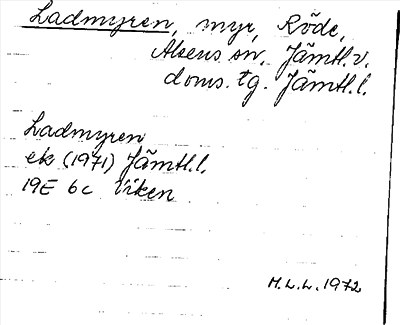 Ladmyren, myr, Röde,
Alsens sn, Jämtl. v.
doms. tg. Jämtl. l.
Ladmyren
ek (1971) Jämtl. l.
19E 6c Viken
M.L.L. 1972